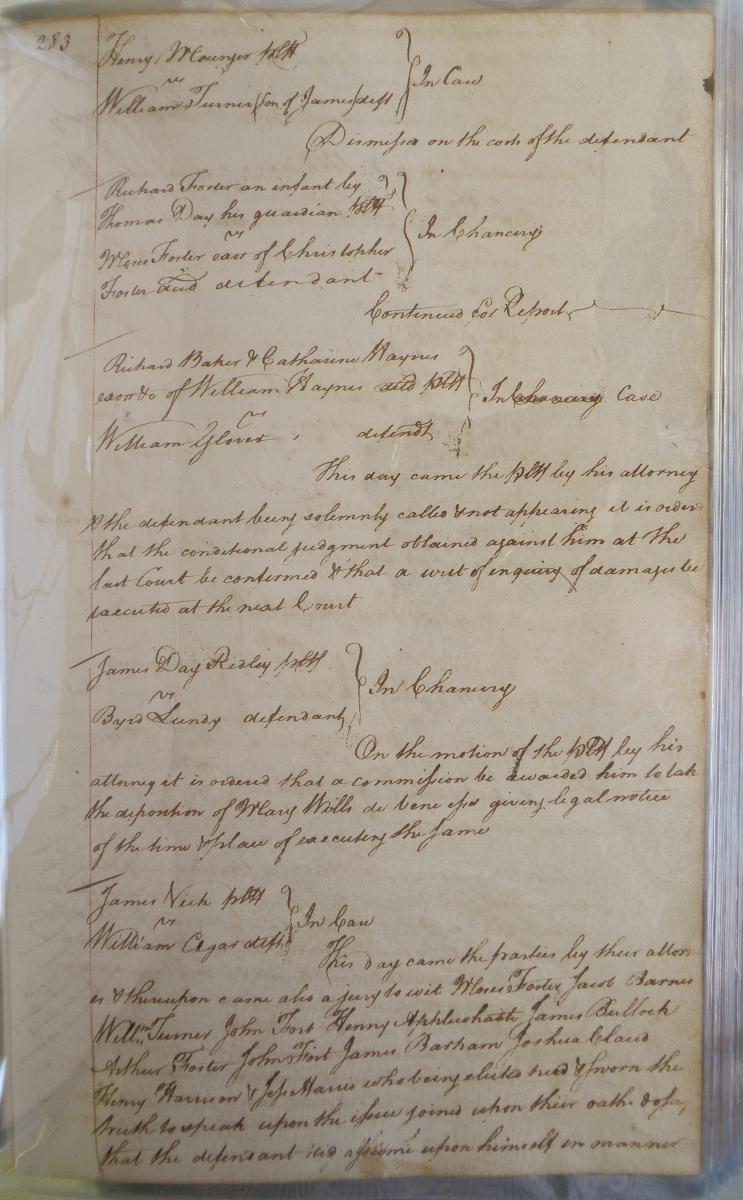 283
Henry Mounger pltf
vs
William Turner (son of James) deft
In Case
Dismissd on the costs of the defendant
Richard Foster an infant by
Thomas Day his guardian pltf
vs
Moses Foster exor of Christopher
Foster decd defendant
In Chancery
Continued for Report
Richard Baker & Catharine Haynes
exors of William Haynes decd pltf
vs
William Glover defendt
In Chancery Case
This day came the pltf by his attorney
& the defendant being solemnly called & not appearing it is orderd
that the conditional judgment obtained against him at the
last Court be confirmed & that a writ of enquiry of damages be
executed at the next Court
James Day Ridley pltf
vs
Byrd Lundy defendant
In Chancery
On the motion of the pltf by his
attorney it is ordered that a commission be awarded him to take
the deposition of Mary Wills de bene esse giving legal notice
of the time & place of executing the same
James Vick pltf
vs
William deft
In Case
This day came the parties by their attorn
es & thereupon came also a jury to wit Moses Foster Jacob Barnes
Willm. Turner John Fort Henry Applewhaite James Bullock
Arthur Foster John Fort James Barham Joshua Claud
Henry Harrison & Jesse Harris who being elected tried & sworn the
truth to speak upon the issue joined upon their oaths do say
that the defendant did assume upon himself in manner